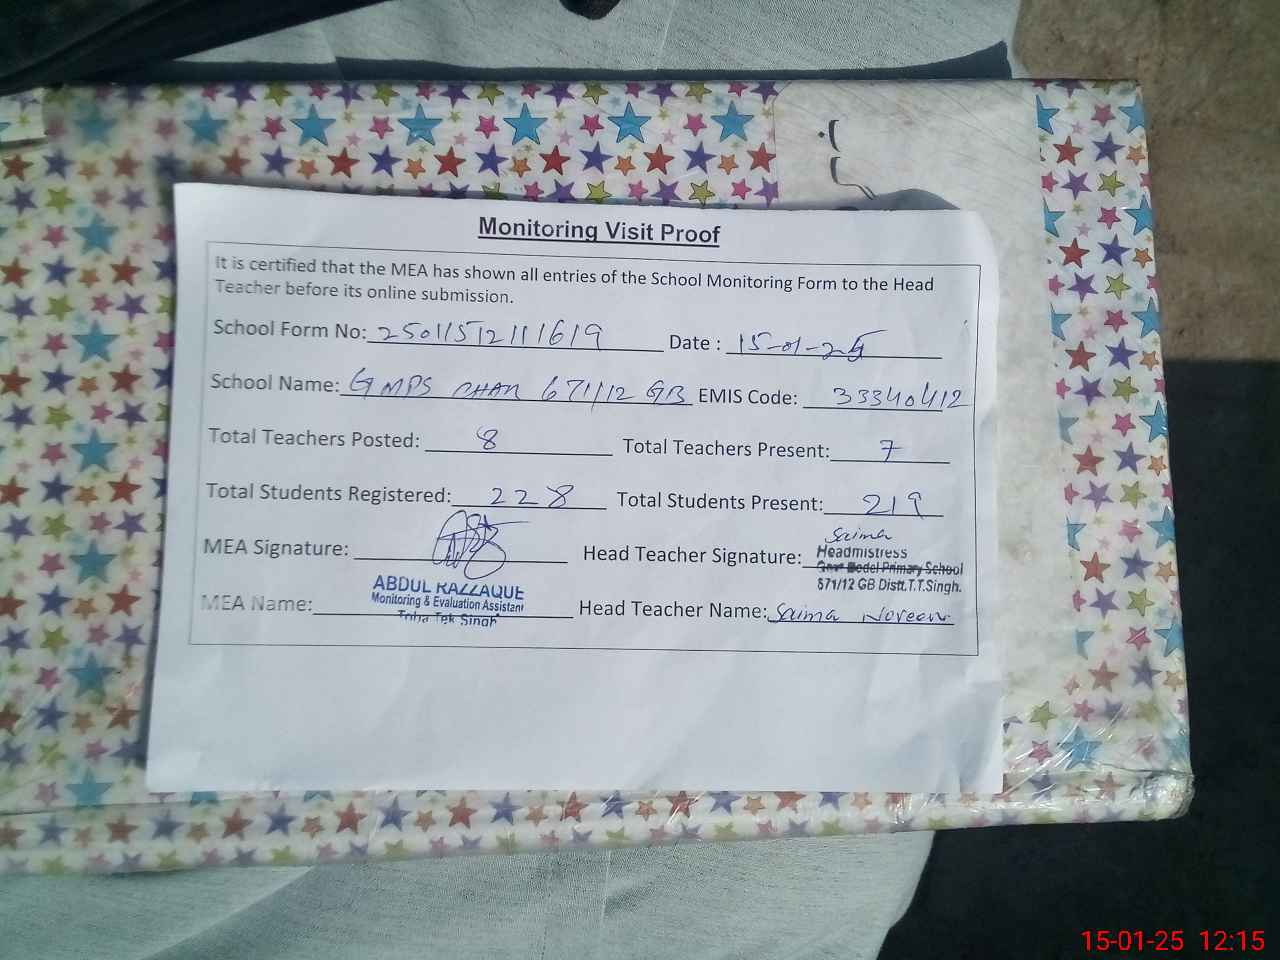 Monitoring Visit Proof
It is certified that the MEA has shown all entries of the School Monitoring Form to the Head
Teacher before its online submission.
School Form No: 2501151211619 Date : 15-01-25
School Name: GMPS CHAK 671/12 GB EMIS Code: 33340412
Total Teachers Posted: 8 Total Teachers Present: 7
Total Students Registered: 228 Total Students Present: 219
MEA Signature: Head Teacher Signature: Saima
Headmistress
Govt Model Primary School
671/12 GB Distt.T.T.Singh.
ABDUL RAZZAQUE
Monitoring & Evaluation Assistant
Toba Tek Singh
MEA Name: Head Teacher Name: Saima Noreen
15-01-25 12:15